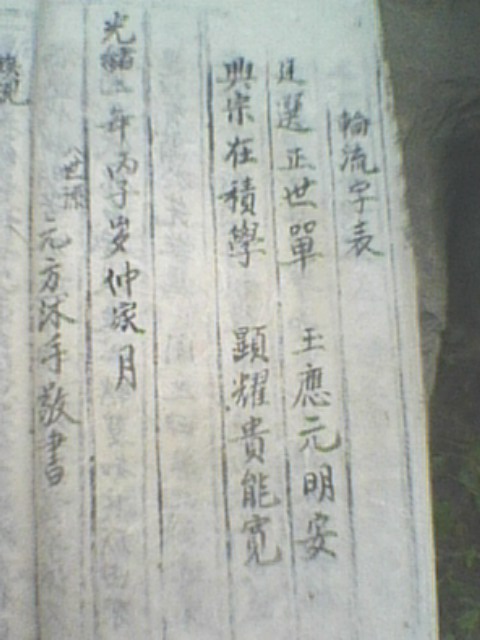 輪流字表
廷選正世單 王應元明安
興宗在積學 顯耀貴能寬
光緒二年丙子岁仲家月
八世孫
元方沐手敬書